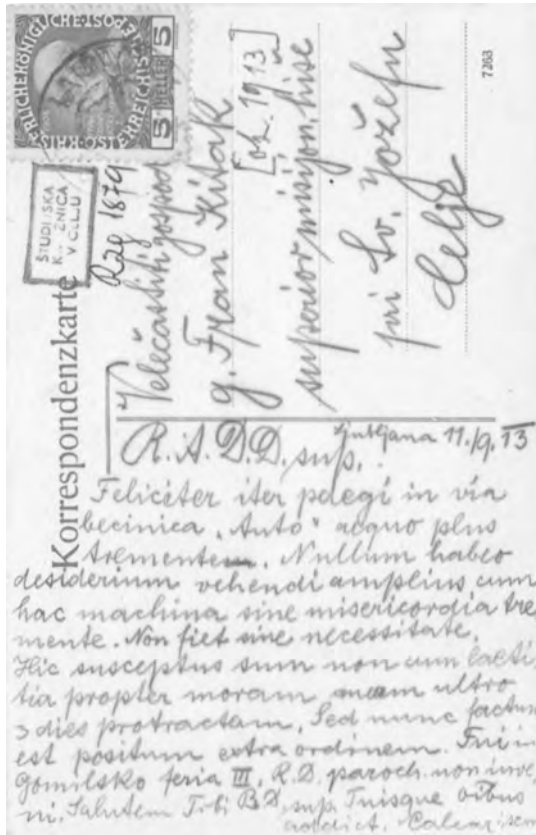 KAISERLICHE KÖNIGLICHE ÖSTERREICHISCHE POST
5 HELLER 5
ŠTUDIJSKA
KNJIŽNICA
V CELJU
R2g 1879
Korrespondenzkarte
Velečastiti gospod
g. Fran Kitak
[ok. 1913]
superior misijon. hiše
pri Sv. Jožefu
Celje
7263
Ljubljana 11./9. 13
R. A. D. D. sup.
Feliciter iter peregi in via
"Auto" aequo plus
tremente. Nullum habeo
desiderium vehendi amplius cum
hac machina sine misericordia tre
mente. Non fiet sine necessitate.
Hic susceptus sum non cum laeti
tia propter moram meam ultro
3 dies protractam. Sed nunc factum
est positum extra ordinem. Fui in
Gomilsko feria III. R. D. paroch. non inve
ni. Salutem Tibi B. D. sup. Tuisque
addict.